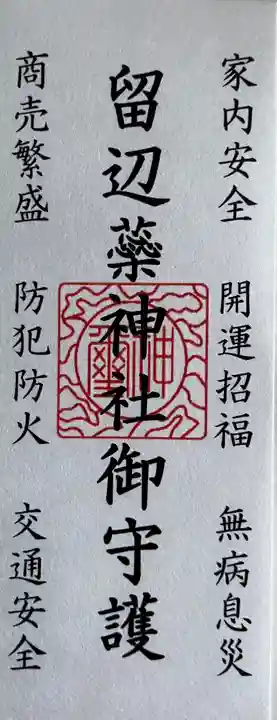 家内安全 開運招福 無病息災
留辺蘂神社御守護
商売繁盛 防犯防火 交通安全